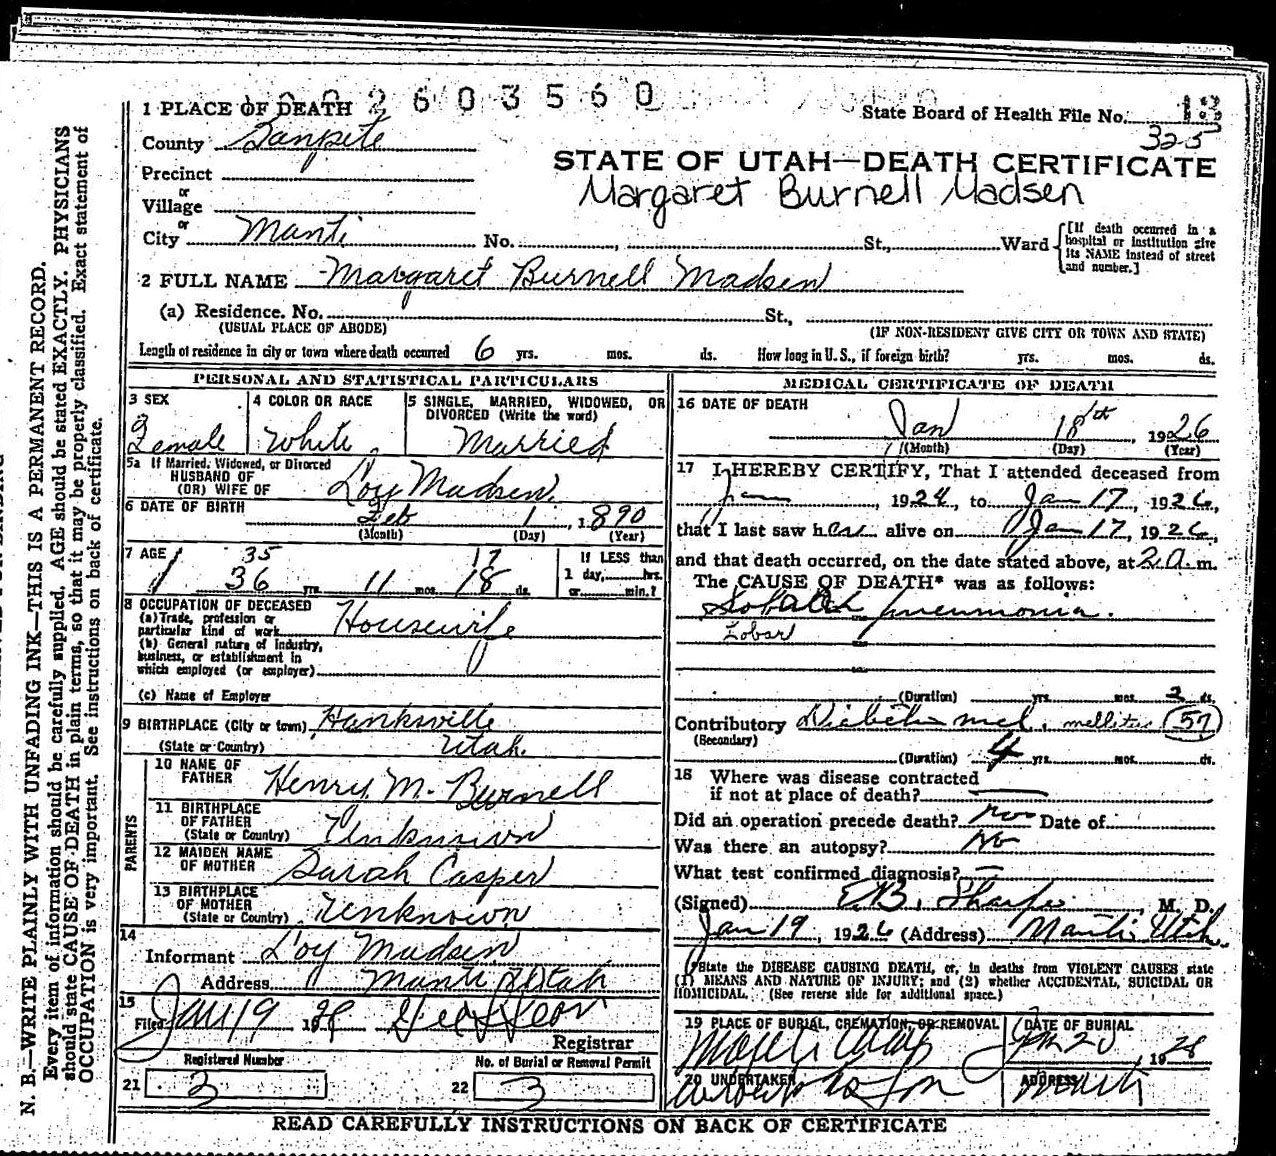 1 PLACE OF DEATH 2 6 0 3 5 6 0
State Board of Health File No. 13
325
County Sanpete
STATE OF UTAH—DEATH CERTIFICATE
Precinct
Margaret Burnell Madsen
or
Village
or
City Manti No. , St., Ward
[If death occurred in a hospital or institution give its NAME instead of street and number.]
2 FULL NAME Margaret Burnell Madsen
(a) Residence. No. St.,
(USUAL PLACE OF ABODE) (IF NON-RESIDENT GIVE CITY OR TOWN AND STATE)
Length of residence in city or town where death occurred 6 yrs. mos. ds. How long in U. S., if foreign birth? yrs. mos. ds.
PERSONAL AND STATISTICAL PARTICULARS
3 SEX 4 COLOR OR RACE 5 SINGLE, MARRIED, WIDOWED, OR DIVORCED (Write the word)
Female White Married
5a If Married, Widowed, or Divorced
HUSBAND OF
(OR) WIFE OF Loy Madsen
6 DATE OF BIRTH Feb 1, 1890
(Month) (Day) (Year)
7 AGE 35 17 If LESS than
36 yrs. 11 mos. 18 ds. 1 day, hrs.
or min.?
8 OCCUPATION OF DECEASED
(a) Trade, profession or
particular kind of work Housewife
(b) General nature of industry,
business, or establishment in
which employed (or employer)
(c) Name of Employer
9 BIRTHPLACE (City or town) Hanksville
(State or Country) Utah.
PARENTS
10 NAME OF
FATHER Henry M. Burnell
11 BIRTHPLACE
OF FATHER
(State or Country) Unknown
12 MAIDEN NAME
OF MOTHER Sarah Casper
13 BIRTHPLACE
OF MOTHER
(State or Country) Unknown
14
Informant Loy Madsen
Address Manti Utah
15
Filed Jan 19
Registrar
Registered Number No. of Burial or Removal Permit
21 3 22 3
MEDICAL CERTIFICATE OF DEATH
16 DATE OF DEATH
Jan 18th, 1926
(Month) (Day) (Year)
17 I HEREBY CERTIFY, That I attended deceased from
Jan, 1924, to Jan 17, 1926,
that I last saw her alive on Jan 17, 1926,
and that death occurred, on the date stated above, at 2 a.m.
The CAUSE OF DEATH* was as follows:
pneumonia.
Lobar
(Duration) yrs. mos. 2 ds.
Contributory Diabetis mel. mellitus 57
(Secondary)
(Duration) 4 yrs. mos. ds.
18 Where was disease contracted
if not at place of death?
Did an operation precede death? no Date of
Was there an autopsy? No
What test confirmed diagnosis?
(Signed) M. D.
Jan 19, 1926 (Address) Manti Utah.
*State the DISEASE CAUSING DEATH, or, in deaths from VIOLENT CAUSES state
(1) MEANS AND NATURE OF INJURY; and (2) whether ACCIDENTAL, SUICIDAL OR
HOMICIDAL. (See reverse side for additional space.)
19 PLACE OF BURIAL, CREMATION, OR REMOVAL DATE OF BURIAL
Jan 20, 1926
20 UNDERTAKER ADDRESS
Manti
READ CAREFULLY INSTRUCTIONS ON BACK OF CERTIFICATE
N. B.—WRITE PLAINLY WITH UNFADING INK—THIS IS A PERMANENT RECORD.
Every item of information should be carefully supplied. AGE should be stated EXACTLY. PHYSICIANS
should state CAUSE OF DEATH in plain terms, so that it may be properly classified. Exact statement of
OCCUPATION is very important. See instructions on back of certificate.